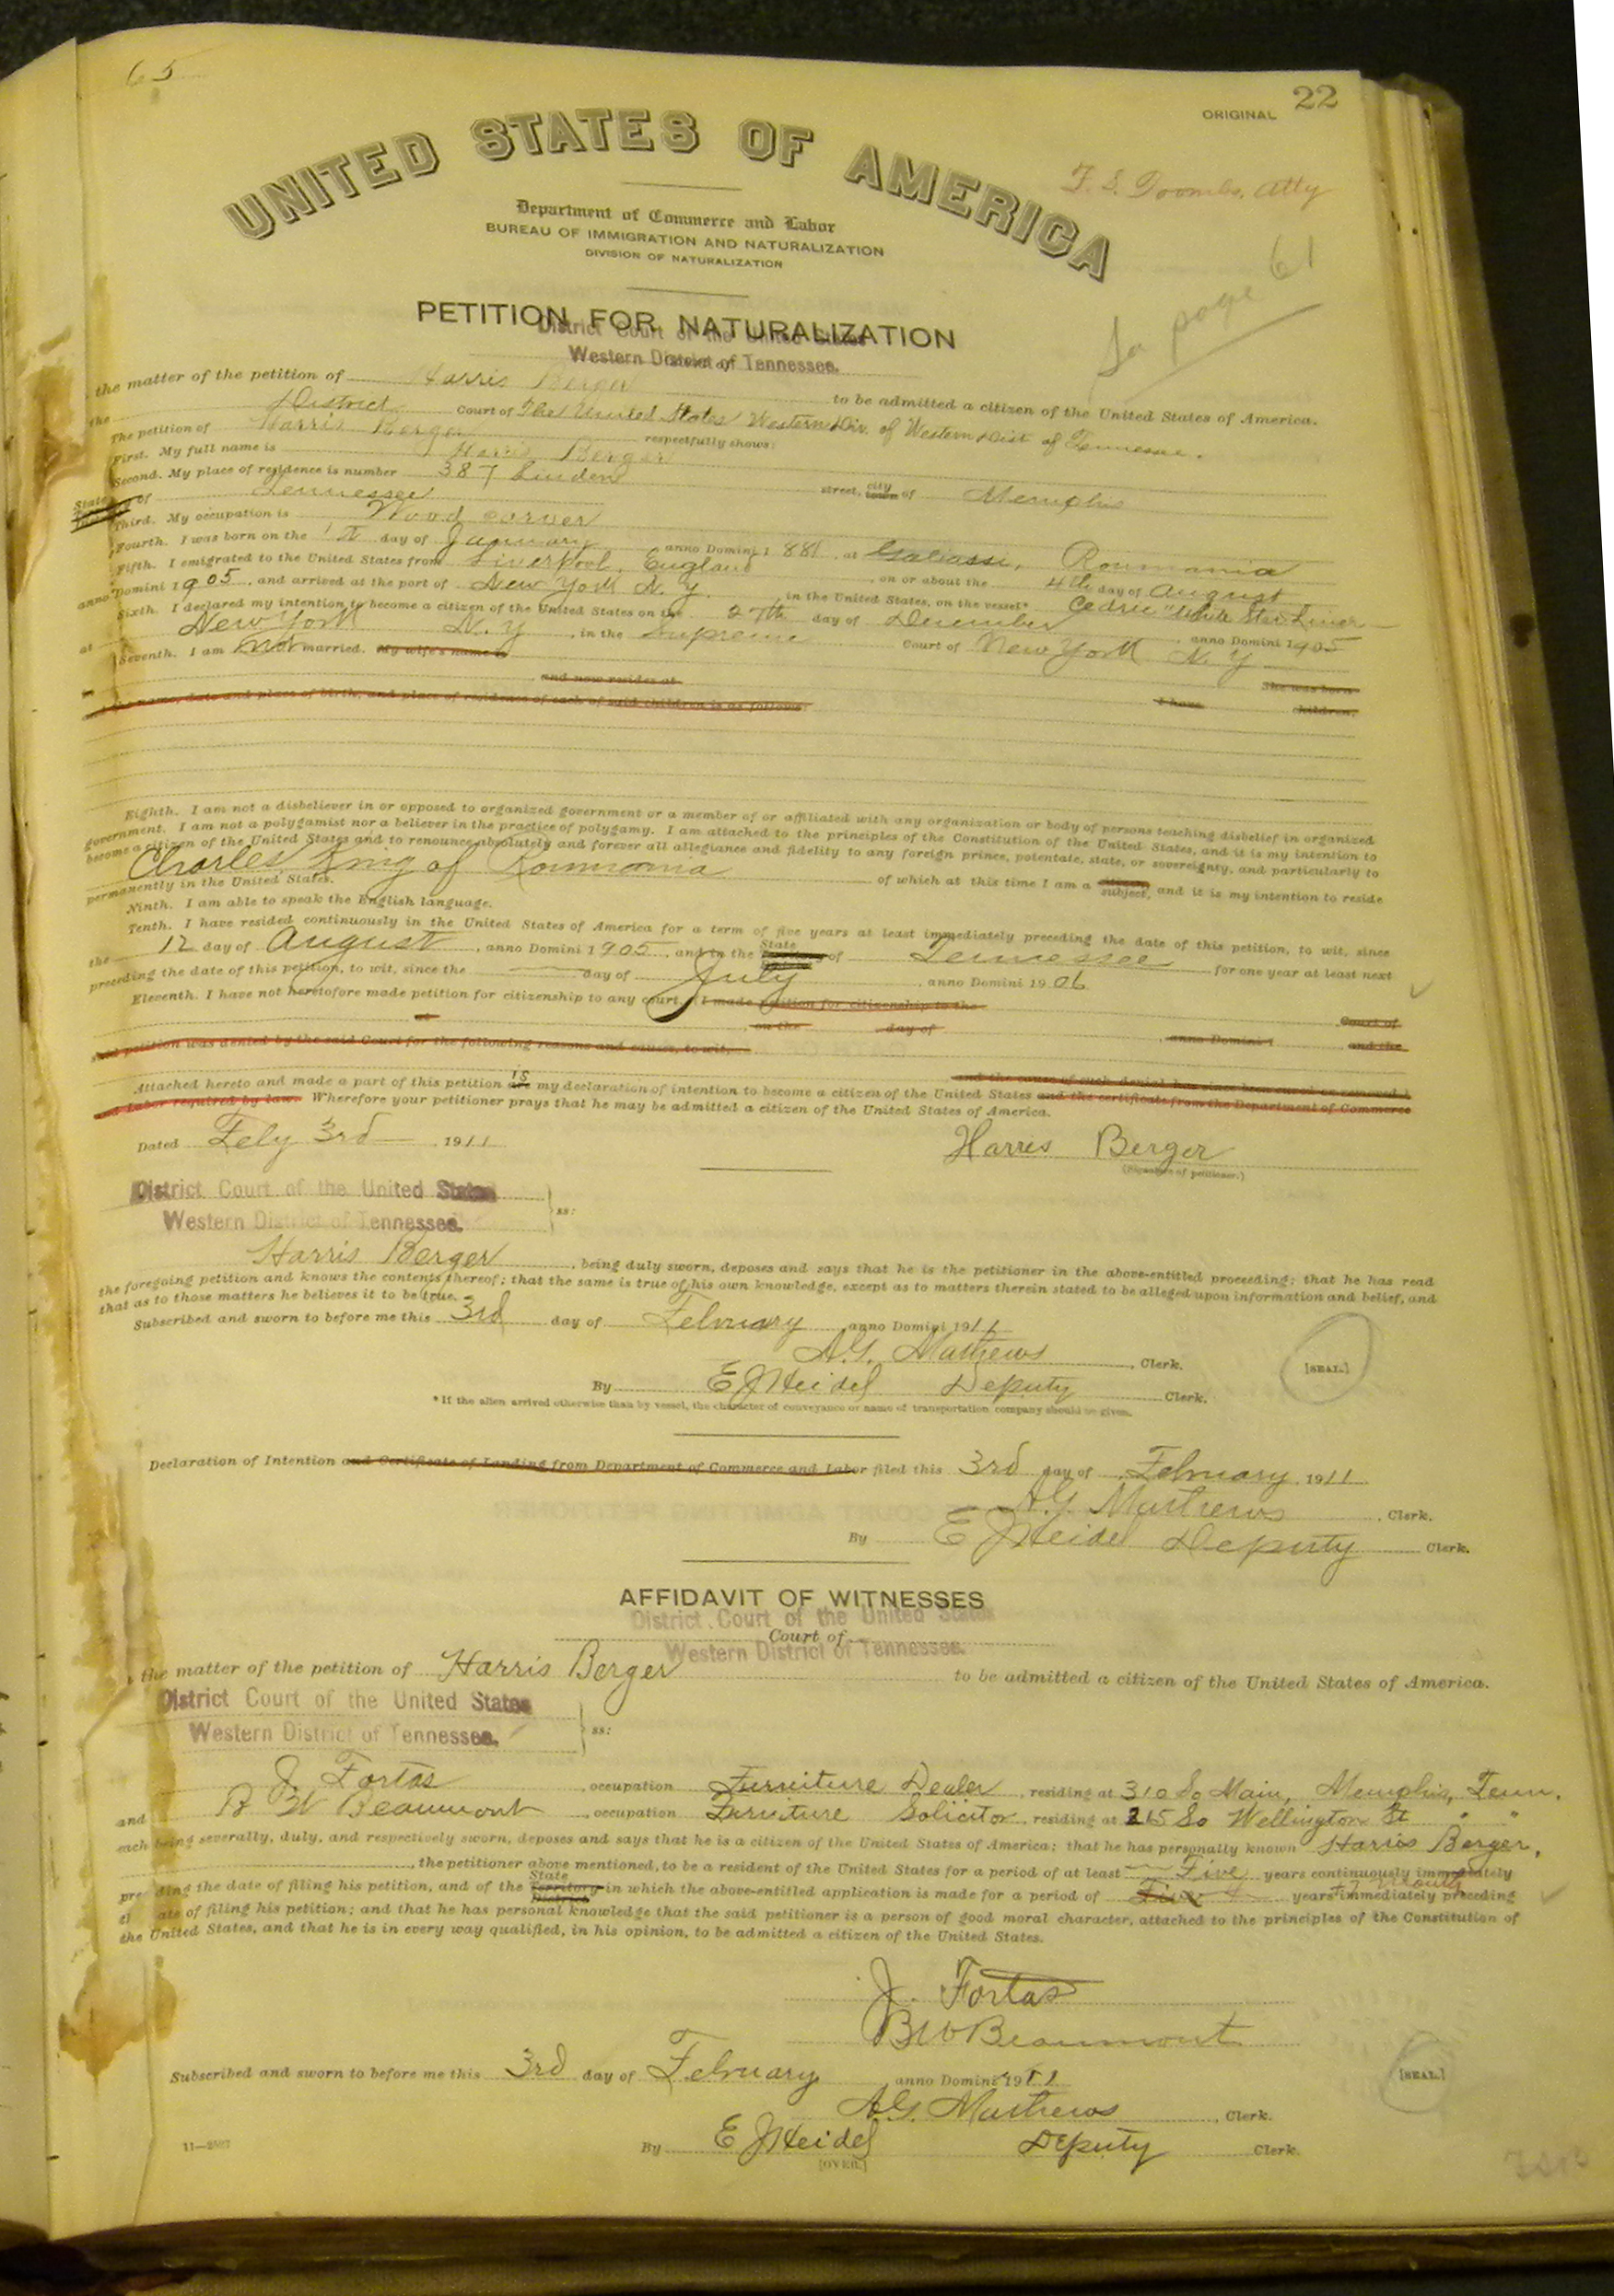 65
22
ORIGINAL
UNITED STATES OF AMERICA
F. S. Toombs, Atty
Department of Commerce and Labor
BUREAU OF IMMIGRATION AND NATURALIZATION
DIVISION OF NATURALIZATION
page 61
PETITION FOR NATURALIZATION
District Court of the United States
Western District of Tennessee.
the matter of the petition of Harris Berger to be admitted a citizen of the United States of America.
the District Court of The United States Western Div. of Western Dist of Tennessee.
The petition of Harris Berger respectfully shows:
First. My full name is Harris Berger
Second. My place of residence is number 387 Linden street, city town of Memphis
State of Tennessee
Third. My occupation is Wood carver
Fourth. I was born on the 1st day of January anno Domini 1881 at Roumania
Fifth. I emigrated to the United States from Liverpool, England on or about the 4th day of August
anno Domini 1905, and arrived at the port of New York N. Y. in the United States, on the vessel* Cedric "White Star Liner
Sixth. I declared my intention to become a citizen of the United States on the 27th day of December anno Domini 1905
at New York N. Y , in the Supreme Court of New York N. Y
Seventh. I am not married. My wife's name is
She was born
in and now resides at
I have children,
the name, date and place of birth, and place of residence of each of said children is as follows:
Eighth. I am not a disbeliever in or opposed to organized government or a member of or affiliated with any organization or body of persons teaching disbelief in organized
government. I am not a polygamist nor a believer in the practice of polygamy. I am attached to the principles of the Constitution of the United States, and it is my intention to
become a citizen of the United States and to renounce absolutely and forever all allegiance and fidelity to any foreign prince, potentate, state, or sovereignty, and particularly to
Charles King of Roumania of which at this time I am a citizen subject, and it is my intention to reside
permanently in the United States.
Ninth. I am able to speak the English language.
Tenth. I have resided continuously in the United States of America for a term of five years at least immediately preceding the date of this petition, to wit, since
the 12 day of August, anno Domini 1905, and in the State of Tennessee for one year at least next
preceding the date of this petition, to wit, since the — day of July, anno Domini 1906
Eleventh. I have not heretofore made petition for citizenship to any court. (I made petition for citizenship to the
Court of
at on the day of anno Domini 1 and the
said petition was denied by the said Court for the following reasons and causes, to wit,
and the cause of such denial has since been cured or removed.)
Attached hereto and made a part of this petition are is my declaration of intention to become a citizen of the United States and the certificate from the Department of Commerce
and Labor required by law. Wherefore your petitioner prays that he may be admitted a citizen of the United States of America.
Dated Feby 3rd 1911
Harris Berger
(Signature of petitioner.)
District Court of the United States
Western District of Tennessee.
ss:
Harris Berger, being duly sworn, deposes and says that he is the petitioner in the above-entitled proceeding; that he has read
the foregoing petition and knows the contents thereof; that the same is true of his own knowledge, except as to matters therein stated to be alleged upon information and belief, and
that as to those matters he believes it to be true.
Subscribed and sworn to before me this 3rd day of February anno Domini 1911
A.G. Mathews, Clerk.
[SEAL.]
By E J Heidel Deputy Clerk.
* If the alien arrived otherwise than by vessel, the character of conveyance or name of transportation company should be given.
Declaration of Intention and Certificate of Landing from Department of Commerce and Labor filed this 3rd day of February 1911
A.G. Mathews Clerk.
By E J Heidel Deputy Clerk.
AFFIDAVIT OF WITNESSES
District Court of the United States
Court of
Western District of Tennessee.
the matter of the petition of Harris Berger to be admitted a citizen of the United States of America.
District Court of the United States
Western District of Tennessee.
ss:
J. Fortas, occupation Furniture Dealer, residing at 310 So Main, Memphis, Tenn.
and B W Beaumont, occupation Furniture Solicitor, residing at 215 So Wellington St " "
each being severally, duly, and respectively sworn, deposes and says that he is a citizen of the United States of America; that he has personally known Harris Berger,
, the petitioner above mentioned, to be a resident of the United States for a period of at least Five years continuously immediately
preceding the date of filing his petition, and of the State Territory District in which the above-entitled application is made for a period of years immediately preceding
the date of filing his petition; and that he has personal knowledge that the said petitioner is a person of good moral character, attached to the principles of the Constitution of
the United States, and that he is in every way qualified, in his opinion, to be admitted a citizen of the United States.
J. Fortas
BW Beaumont
Subscribed and sworn to before me this 3rd day of February anno Domini 1911
[SEAL.]
A.G. Mathews, Clerk.
By E J Heidel Deputy Clerk.
[OVER.]